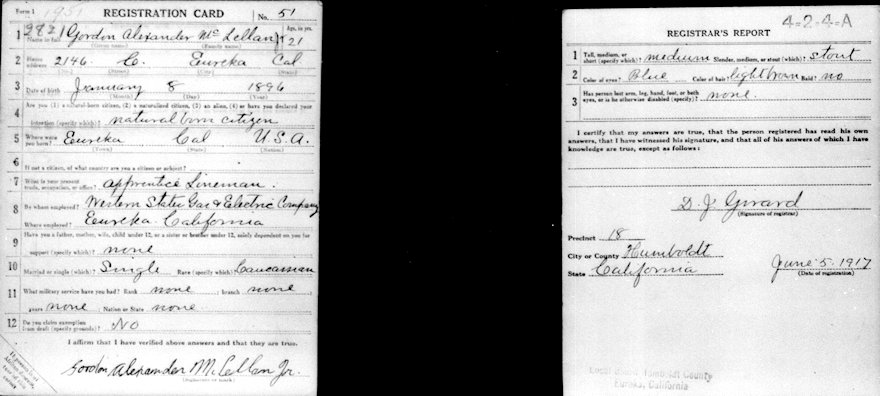 Form 1 1951 REGISTRATION CARD No. 51
2821
1 Name in full Gordon Alexander McLellan Jr Age, in yrs. 21
(Given name) (Family name)
2 Home address 2146 C. Eureka Cal
(No.) (Street) (City) (State)
3 Date of birth January 8 1896
(Month) (Day) (Year)
4 Are you (1) a natural-born citizen, (2) a naturalized citizen, (3) an alien, (4) or have you declared your
intention (specify which)? natural born citizen
5 Where were you born? Eureka Cal U.S.A.
(Town) (State) (Nation)
6 If not a citizen, of what country are you a citizen or subject?
7 What is your present trade, occupation, or office? apprentice Lineman.
8 By whom employed? Western States Gas & Electric Company
Where employed? Eureka California
9 Have you a father, mother, wife, child under 12, or a sister or brother under 12, solely dependent on you for
support (specify which)? none
10 Married or single (which)? Single Race (specify which)? Caucasian
11 What military service have you had? Rank none ; branch none
years none ; Nation or State none
12 Do you claim exemption from draft (specify grounds)? No
I affirm that I have verified above answers and that they are true.
Gordon Alexander McLellan Jr.
(Signature or mark)
4-2-4-A
REGISTRAR'S REPORT
1 Tall, medium, or short (specify which)? medium Slender, medium, or stout (which)? stout
2 Color of eyes? Blue Color of hair? light brown Bald? no
3 Has person lost arm, leg, hand, foot, or both
eyes, or is he otherwise disabled (specify)? none.
I certify that my answers are true, that the person registered has read his own
answers, that I have witnessed his signature, and that all of his answers of which I have
knowledge are true, except as follows:
D. J. Girard
(Signature of registrar)
Precinct 18
City or County Humboldt
State California June 5-1917
(Date of registration)
Local Board Humboldt County
Eureka, California